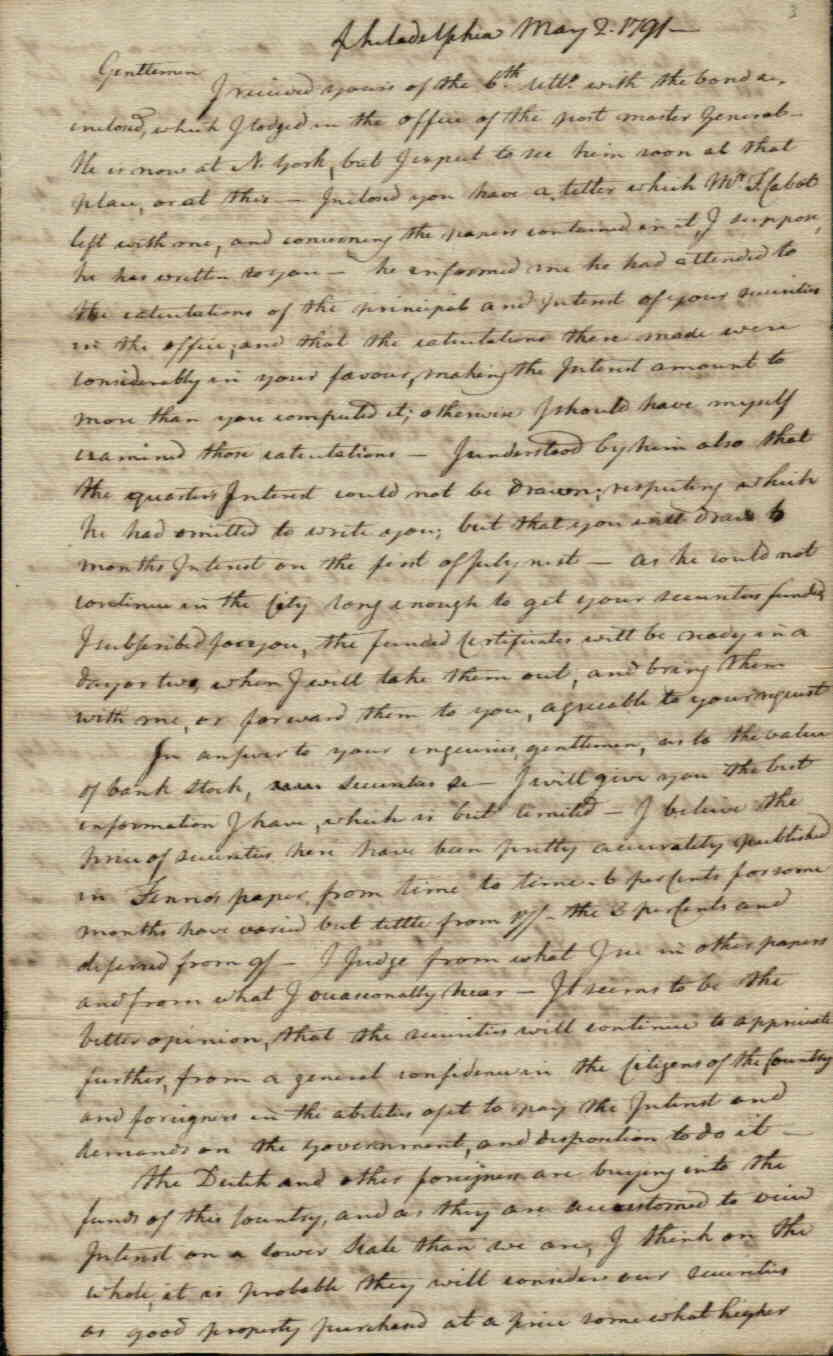 3
Philadelphia May 2. 1791 —
Gentlemen
I received yours of the 6.th Ult.o with the bond
inclosed, which I lodged in the office of the post master General —
He is now at N. York, but I expect to see him soon at that
place, or at this — Inclosed you have a letter which Mr. F. Cabot
left with me, and concerning the papers contained in it, I suppose,
he has written to you — he informed me he had attended to
the calculations of the principal and Interest of your securities
in the office, and that the calculations there made were
considerably in your favour, making the Interest amount to
more than you computed it; otherwise I should have myself
examined those calculations — I understood by him also that
the quarters Interest could not be drawn; respecting which
he had omitted to write you; but that you will draw 6
months Interest on the first of July next — as he could not
continue in the City long enough to get your securities funded
I subscribed for you, the funded Certificates will be ready in a
day or two, when I will take them out, and bring them
with me, or forward them to you, agreable to your request
In answer to your enquiries, gentlemen, as to the value
of bank stock, securities &c — I will give you the best
information I have, which is but limited — I believe the
price of securities here have been pretty accurately published
in Fenno's paper, from time to time — 6 per Cents for some
months have varied but little from 17/ — the 3 per Cents and
deferred from 9/ — I Judge from what I see in other papers
and from what I occasionally hear — It seems to be the
better opinion, that the securities will continue to appreciate
further, from a general confidence in the Citizens of the Country
and foreigners in the abilities of it to pay the Interest and
demands on the government, and disposition to do it —
the Dutch and other foreigners are buying into the
funds of this Country, and as they are accustomed to view
Interest on a lower Scale than we are, I think on the
whole, it is probable they will consider our securities
as good property purchased at a price somewhat higher